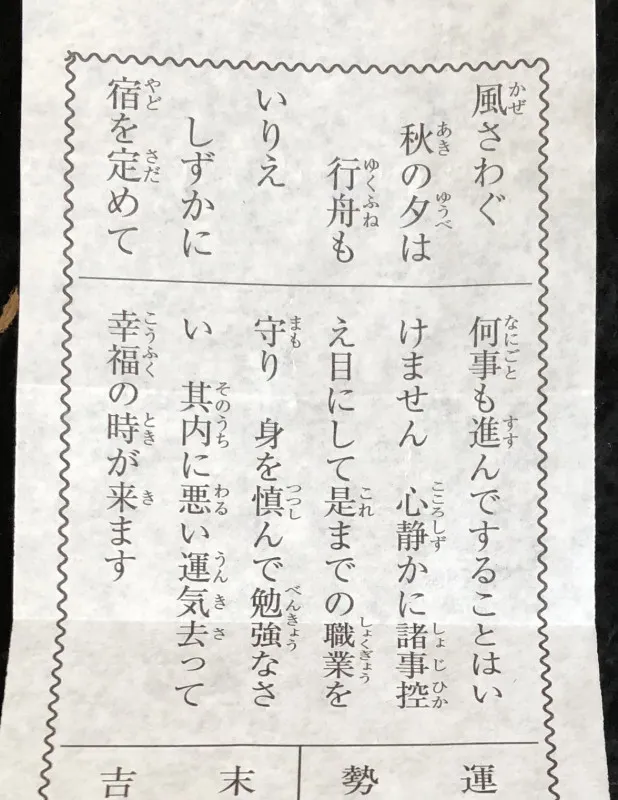 風さわぐ
秋の夕は
行舟も
いりえ
しずかに
宿を定めて
何事も進んですることはい
けません 心静かに諸事控
え目にして是までの職業を
守り 身を慎んで勉強なさ
い 其内に悪い運気去って
幸福の時が来ます
運勢
末吉